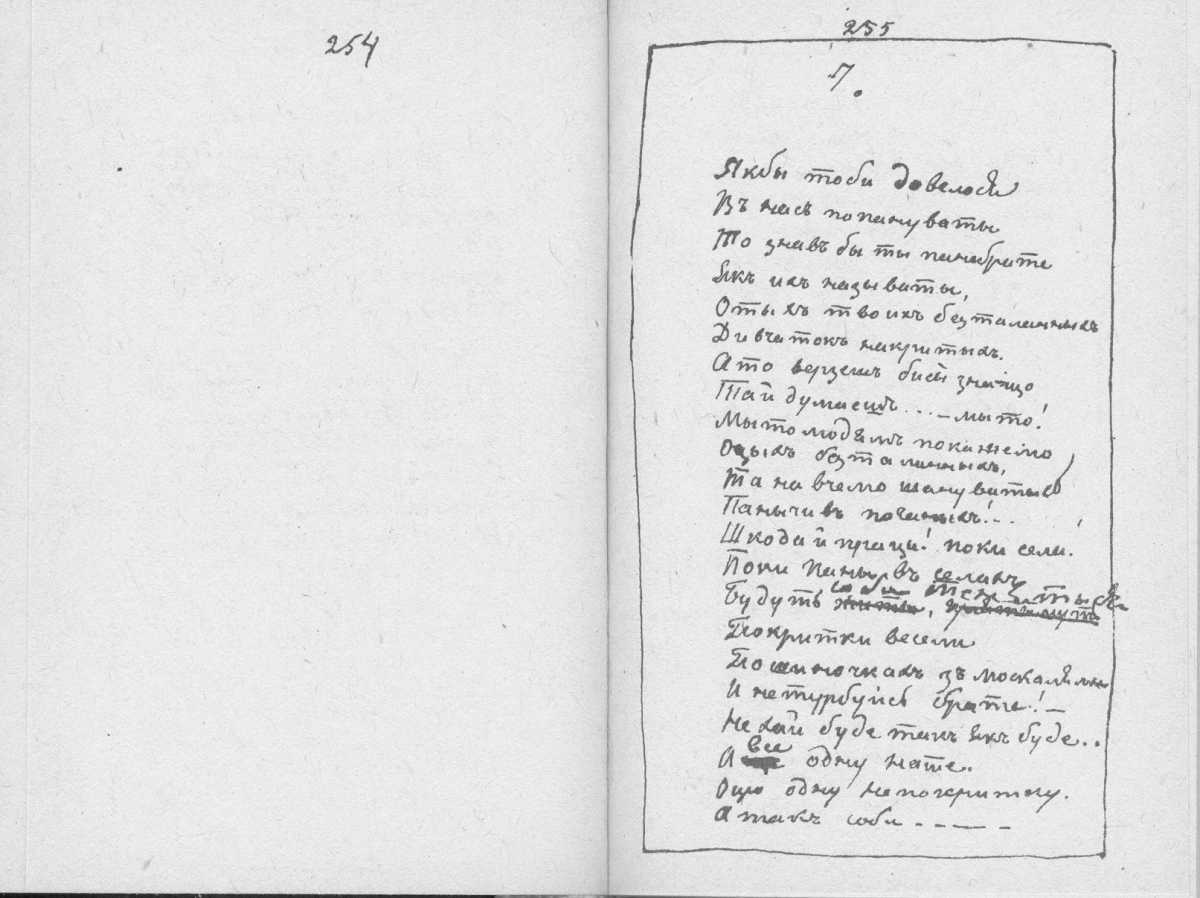 254
255
7.
Якбы тоби довелося
Въ насъ попануваты
То знавъ бы ты панебрате
Якъ ихъ называты,
Отыхъ твоихъ безталанныхъ
Дивчатокъ накритыхъ.
А то верзешъ бисы знащо
Тай думаешъ... – мы то!
Мы то людямъ покажемо
Оцыхъ безталанныхъ,
Та навчемо шануватыся
Панычивъ поганыхъ!..
Шкода й праци! поки села.
Поки паны въ селахъ
Будуть соби тенятыся
Покритки весели
По шиночкахъ зъ москалями
И не турбуйсь брате! –
Нехай буде такъ якъ буде..
А все одну мате..
Ощо одну непогеритку.
А такъ соби - - - — -